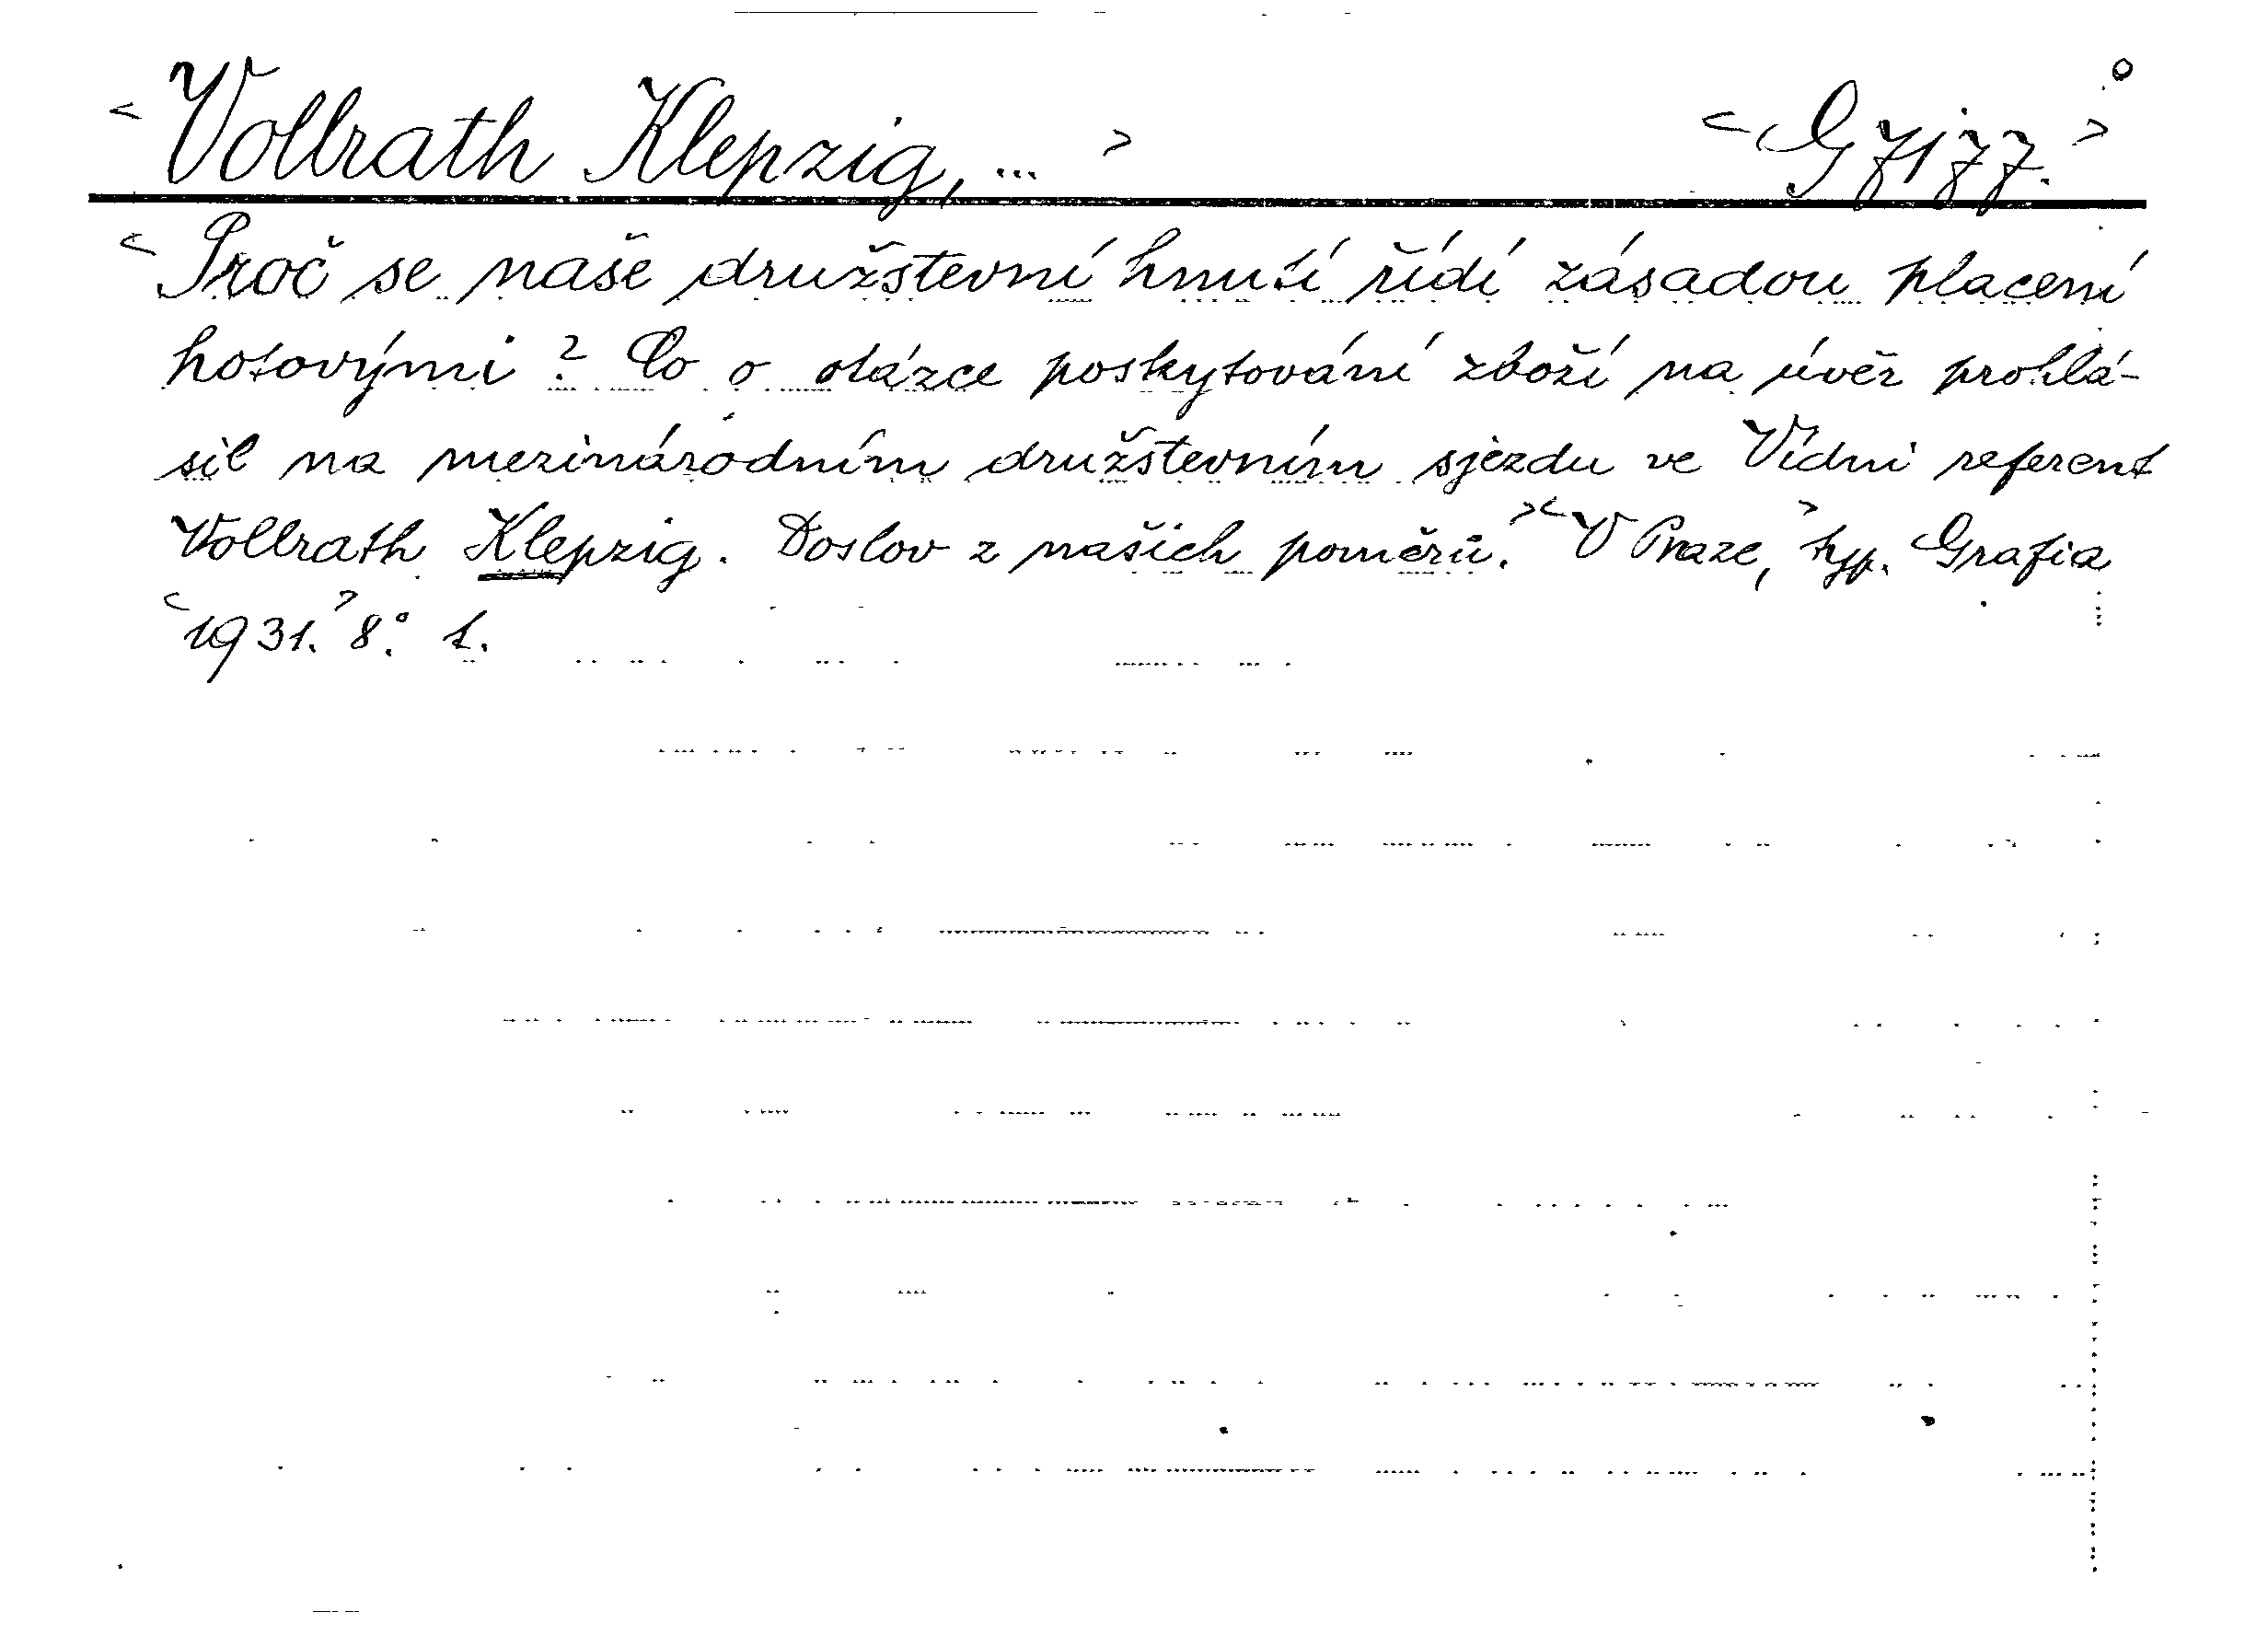 <Vollrath Klepzig, ...> <G 7177.>
<Proč se naše družstevní hnutí řídí zásadou placení
hotovými? Co o otázce poskytování zboží na úvěr prohlá-
sil na mezinárodním družstevním sjezdu ve Vídni referent
Vollrath Klepzig. Doslov z našich poměrů.> <V Praze,> typ. Grafia
<1931.> 8°. 1.